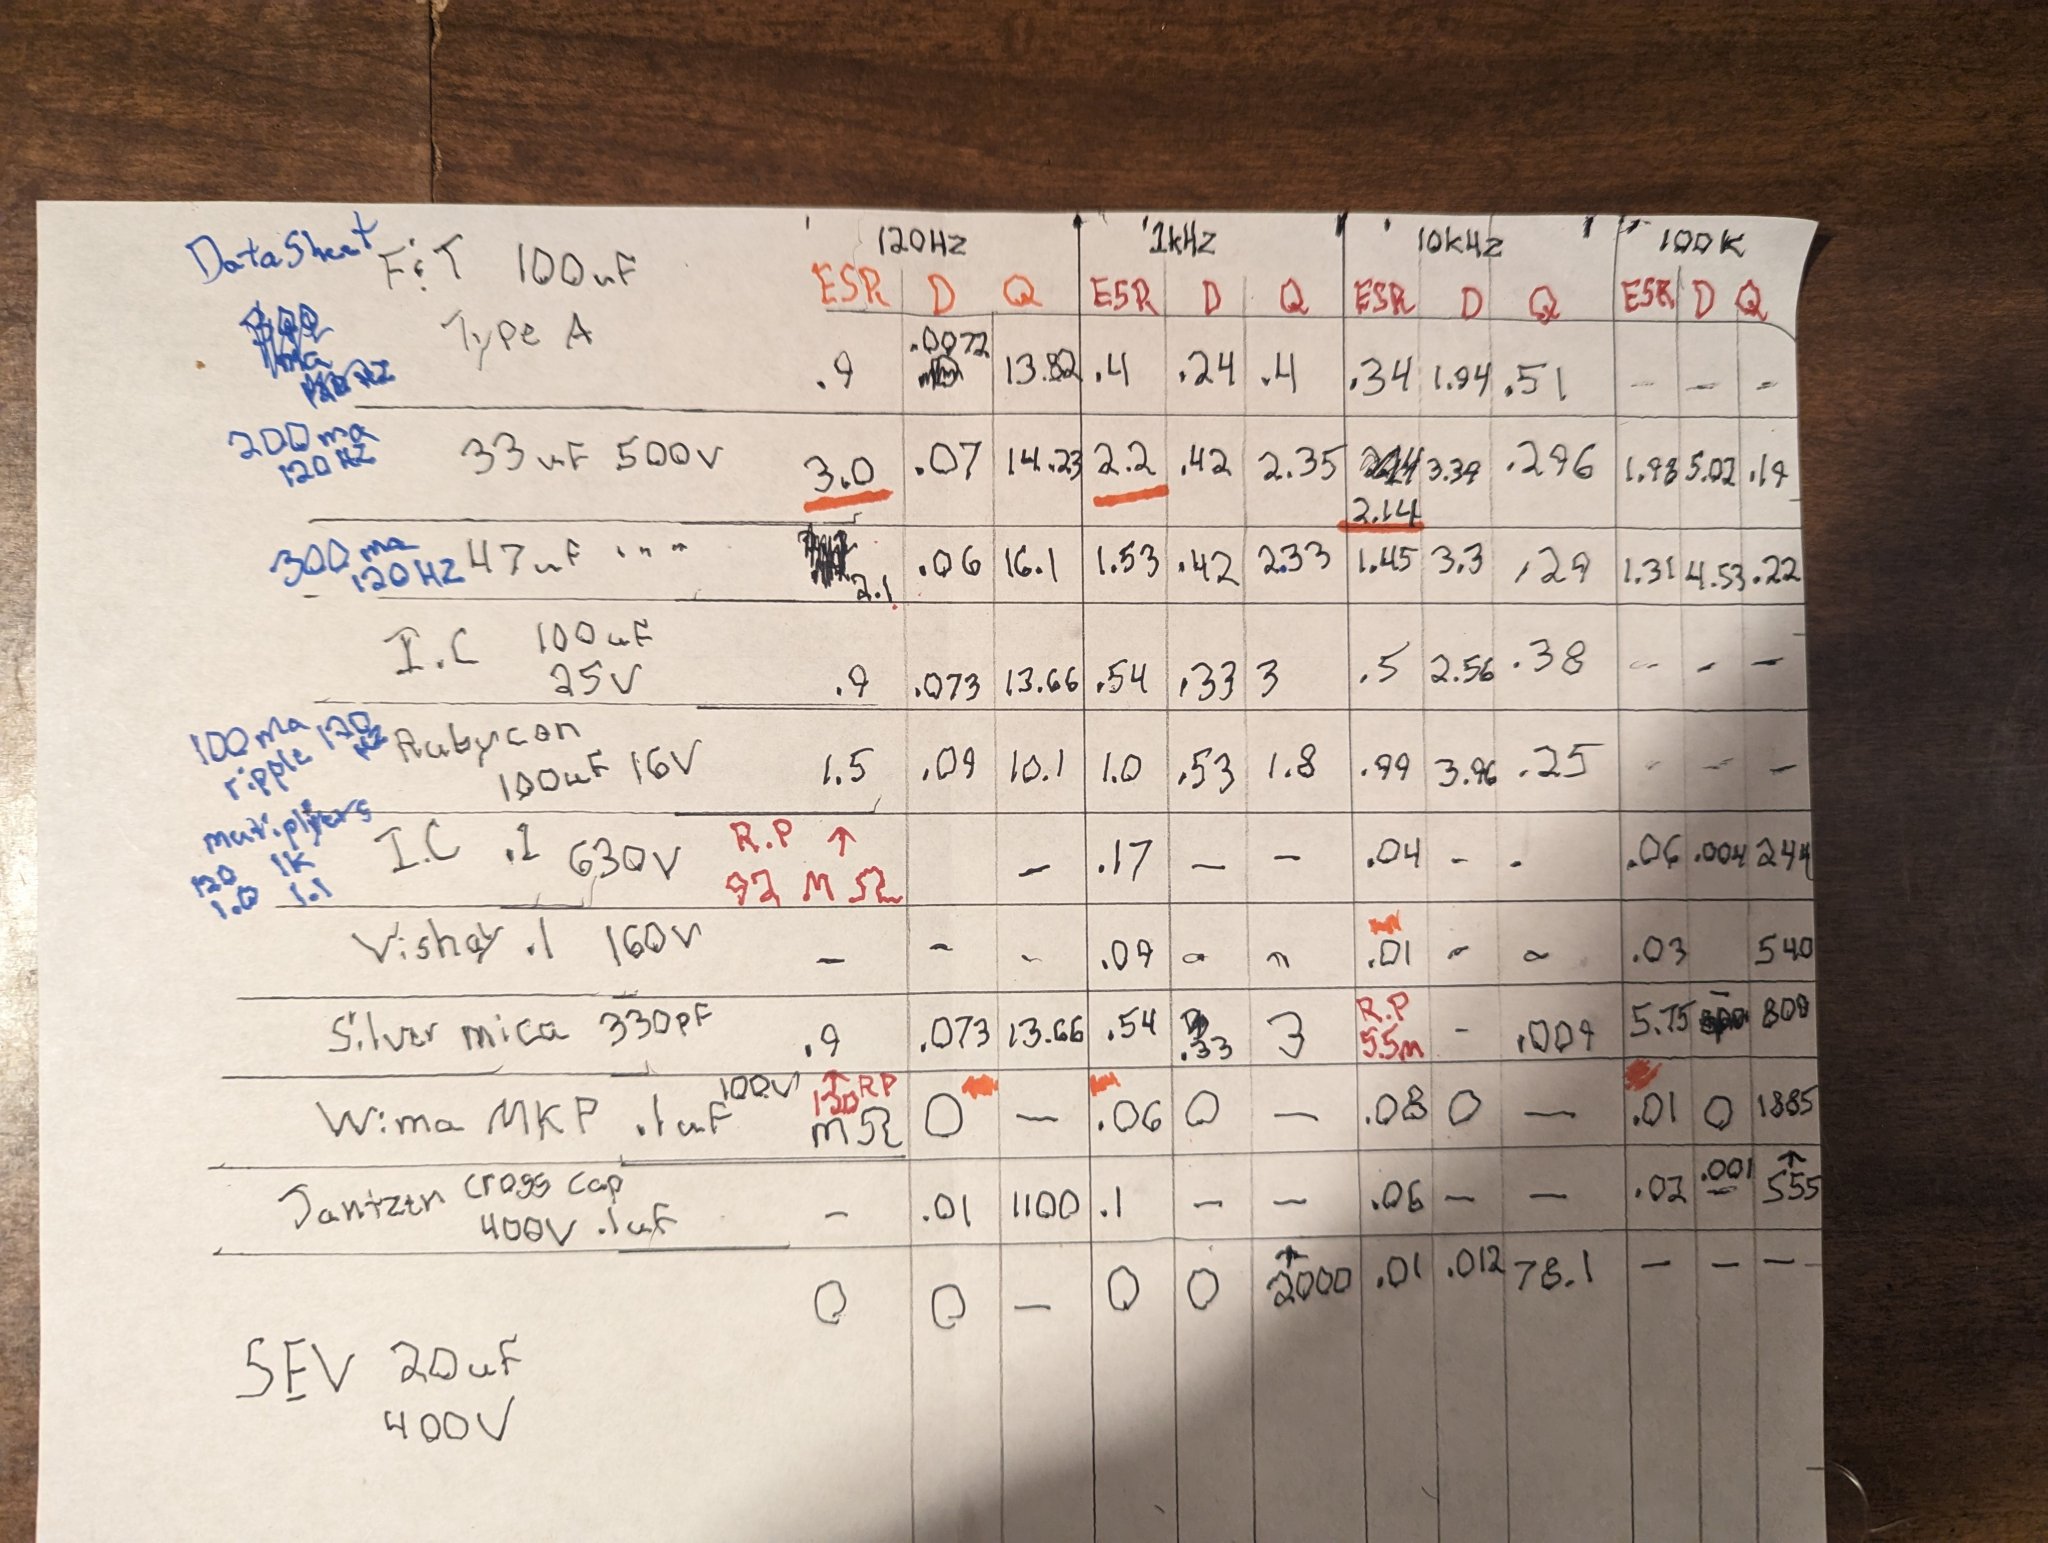 DataSheet F&T 100uF
Type A
120HZ 1kHZ 10kHZ 100K
ESR D Q ESR D Q ESR D Q ESR D Q
.9 .0072 13.82 .4 .24 .4 .34 1.94 .51 - - -
200ma
120HZ
33uF 500V 3.0 .07 14.23 2.2 .42 2.35 3.39 .296 1.98 5.02 .19
2.14
300ma
120HZ
47uF """ 2.1 .06 16.1 1.53 .42 2.33 1.45 3.3 .29 1.31 4.53 .22
I.C 100uF
25V .9 .073 13.66 .54 .33 3 .5 2.56 .38 - - -
100ma
ripple 120
HZ
Rubycon
100uF 16V 1.5 .09 10.1 1.0 .53 1.8 .99 3.96 .25 - - -
120 1K
1.0 1.1
I.C .1 630V R.P ↑
92 M Ω - .17 - - .04 - - .06 .004 244
Vishay .1 160V - - - .09 - - .01 - - .03 540
Silver mica 330pF .9 .073 13.66 .54 .33 3 R.P
5.5m - .009 5.75 - 809
Wima MKP .1uF 100V ↑ RP
120
mΩ 0 - .06 0 - .08 0 - .01 0 1885
Jantzen cross cap
400V .1uF - .01 1100 .1 - - .06 - - .02 .001 - ↑ 555
SEV 20uF
400V
0 0 - 0 0 ↑ 2000 .01 .012 78.1 - - -